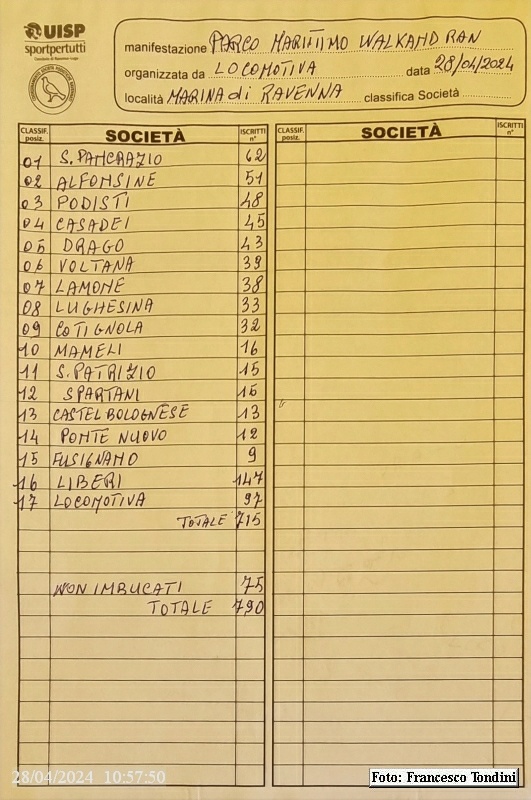 UISP
sportpertutti
manifestazione PARCO MARITTIMO WALKAND RAN
organizzata da LOCOMOTIVA data 28/04/2024
località MARINA di RAVENNA classifica Società
CLASSIF. posiz. SOCIETÀ ISCRITTI n° CLASSIF. posiz. SOCIETÀ ISCRITTI n°
01 S. PANCRAZIO 62
02 ALFONSINE 51
03 PODISTI 48
04 CASADEI 45
05 DRAGO 43
06 VOLTANA 39
07 LAMONE 38
08 LUGHESINA 33
09 COTIGNOLA 32
10 MAMELI 16
11 S. PATRIZIO 15
12 SPARTANI 15
13 CASTEL BOLOGNESE 13
14 PONTE NUOVO 12
15 FUSIGNANO 9
16 LIBERI 147
17 LOCOMOTIVA 97
TOTALE 715
NON IMBUCATI 75
TOTALE 790
28/04/2024 10:57:50
Foto: Francesco Tondini